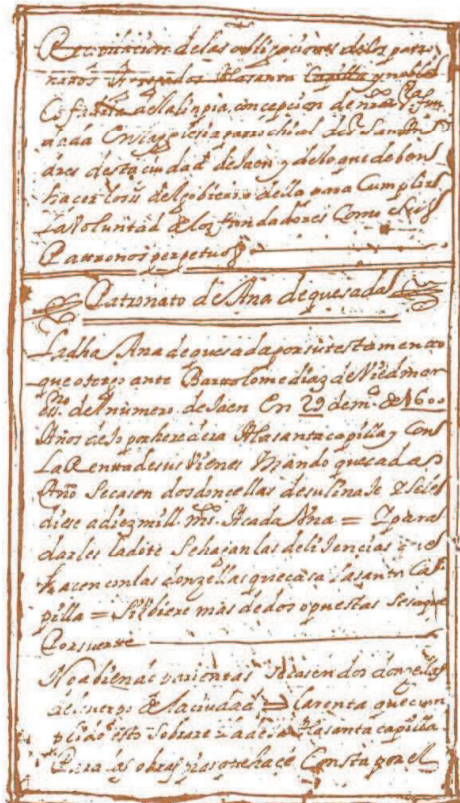 Recopilacion de las obligaçiones de los patro
natos Agregados A la santa Capilla y noble
Cofradia de la linpia concepcion de nra Sª fun
dada En la yglesia parrochial del San Andres
dres desta ciudad de Jaen y de lo que deben
hacer los del gobierno della para Cumplir
La Voluntad de los fundadores Como
Patronos perpetuos
Patronato de Ana de quesada
La dha Ana de quesada por su testamento
que otorgo ante Bartolome diaz de Viedma
del numero de Jaen En 29 de 1600
Años dejo por heredera A la santa capilla y Con
La Renta de sus Vienes Mando que cada
Año Se casen dos doncellas de su linaje Y se les
diese a diez mill mrs A cada Una = Y para
darles la dote Se hagan las delijencias q
hacen con las donzellas que casa la santa Ca
pilla = Si Vbiere mas de dos opuestas Se saque
Por suerte
No abiendo parientas Se casen dos donzellas
de la ciudad = La renta que cum
plido esto Sobrare A la santa capilla
Para las obras pias que haçe Consta por el